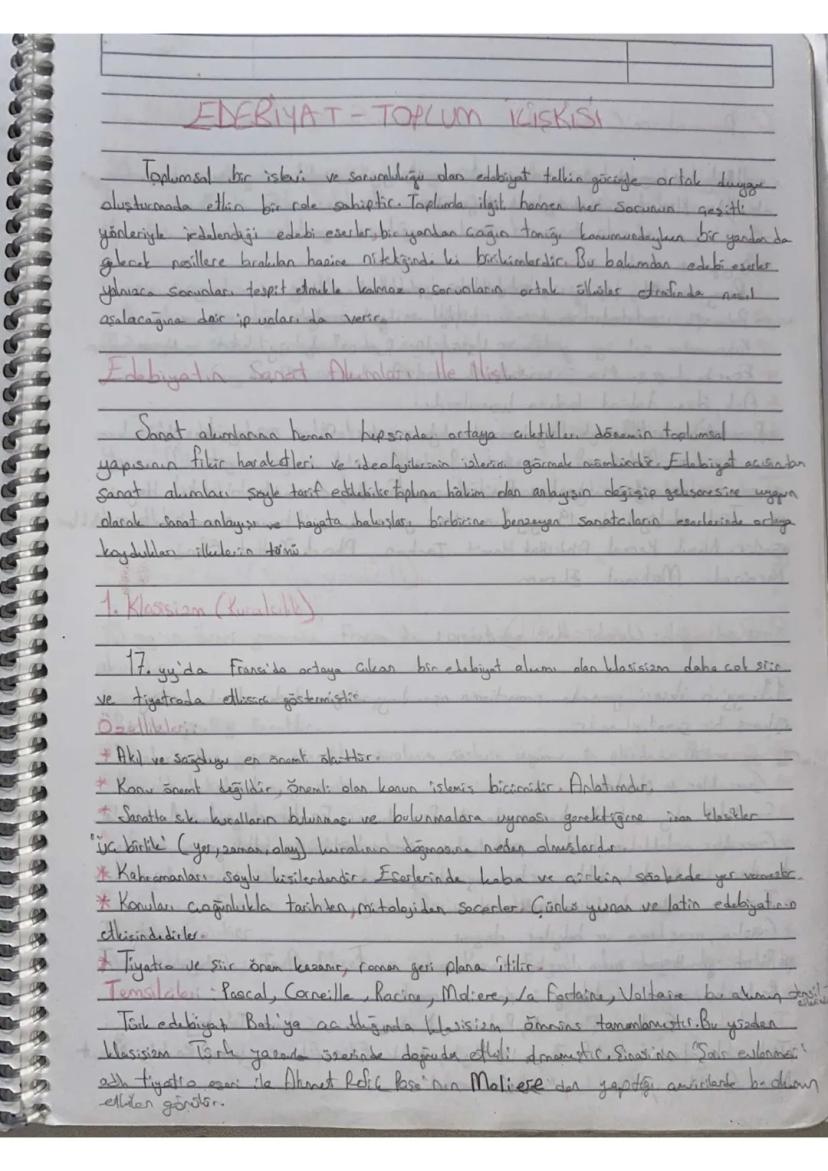 EDEBİYAT - TOPLUM İLİŞKİSİ
Toplumsal bir işlevi ve sorumluluğu olan edebiyat telkin gücüyle ortak duygu
oluşturmada etkin bir role sahiptir. Toplumla ilgili hemen her sorunun çeşitli
yönleriyle irdelendiği edebi eserler, bir yandan çağın tanığı konumundayken bir yandan da
gelecek nesillere bırakılan hazine niteliğindeki birikimlerdir. Bu bakımdan edebi eserler
yalnızca sorunları tespit etmekle kalmaz o sorunların ortak ülküler etrafında nasıl
aşılacağına dair ipuçları da verir.
Edebiyatın Sanat Akımları ile İlişki
Sanat akımlarının hemen hepsinde ortaya çıktıkları dönemin toplumsal
yapısının fikir hareketleri ve ideolojilerinin izlerini görmek mümkündür. Edebiyat açısından
sanat akımları şöyle tarif edilebilir topluma hâkim olan anlayışın değişip gelişmesine uygun
olarak sanat anlayışı ve hayata bakışları birbirine benzeyen sanatçıların eserlerinde ortaya
koydukları ilkelerin tümü
1. Klasisizm (Kuralcılık)
17. yy'da Fransa'da ortaya çıkan bir edebiyat akımı olan klasisizm daha çok şiir
ve tiyatroda etkisini göstermiştir
Özellikleri:
* Akıl ve sağduyu en önemli
* Konu önemli değildir, önemli olan konun işleniş biçimidir. Anlatımdır.
* Sanatta sıkı kuralların bulunması ve bulunmalara uyması gerektiğine inan klasikler
"üç birlik" (yer, zaman, olay) kuralının doğmasına neden olmuşlardır
* Kahramanları soylu kişilerdendir. Eserlerinde kaba ve çirkin sözlere yer vermezler.
* Konuları çoğunlukla tarihten, mitolojiden seçerler. Çünkü yunan ve latin edebiyatının
etkisindedirler.
* Tiyatro ve şiir önem kazanır, roman geri plana itilir.
Temsilcileri: Pascal, Corneille, Racine, Moliere, La Fontaine, Voltaire bu akımın temsilcileridir
Türk edebiyatı Batı'ya açıldığında klasisizm ömrünü tamamlamıştır. Bu yüzden
klasisizm Türk üzerinde doğrudan etkili olmamıştır. Şinasi'nin "Şair evlenmesi"
adlı tiyatro eseri ile Ahmet Paşa'nın Moliere'den yaptığı bu akımın
etkileri görülür.